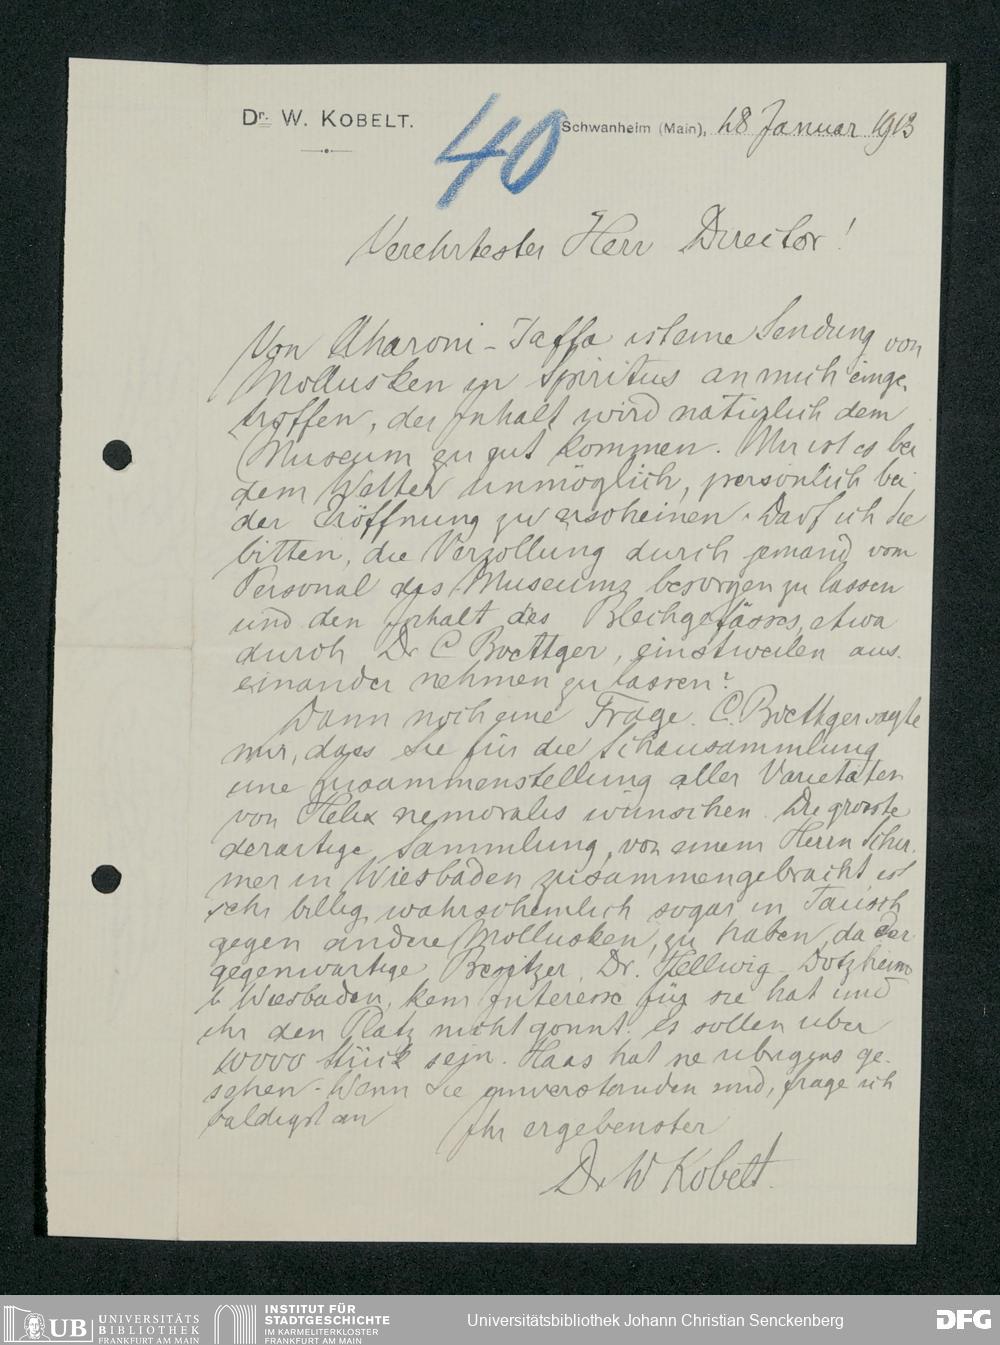 Dr. W. KOBELT.
40
Schwanheim (Main), 18 Januar 1913
Verehrtester Herr Director!
Von Aharoni-Jaffa ist eine Sendung von
Mollusken in Spiritus an mich einge-
troffen, der Inhalt wird natürlich dem
Museum zu gut kommen. Mir ist es bei
dem Wetter unmöglich, persönlich bei
der Eröffnung zu erscheinen. Darf ich Sie
bitten, die Verzollung durch jemand vom
Personal des Museums besorgen zu lassen
und den Inhalt des Blechgefässes, etwa
durch Dr C Boettger, einstweilen aus-
einander nehmen zu lassen?
Dann noch eine Frage. C. Boettger sagte
mir, dass Sie für die Schausammlung
eine Zusammenstellung aller Varietäten
von Helix nemoralis wünschen. Die grosste
derartige Sammlung, von einem Herrn
mer in Wiesbaden zusammengebracht, ist
sehr billig, wahrscheinlich sogar in Tausch
gegen andere Mollusken, zu haben, da der
gegenwartige Besitzer, Dr. Hellwig Dotzheim
b Wiesbaden, kein Interesse für sie hat und
ihr den Platz nicht gonnt. Es sollen uber
10000 Stück sein. Haas hat sie ubrigens ge-
sehen. Wenn Sie einverstanden sind, frage ich
baldigst an
Ihr ergebenster
Dr W Kobelt.
UB UNIVERSITÄTS
BIBLIOTHEK
FRANKFURT AM MAIN
INSTITUT FÜR
STADTGESCHICHTE
IM KARMELITERKLOSTER
FRANKFURT AM MAIN
Universitätsbibliothek Johann Christian Senckenberg
DFG